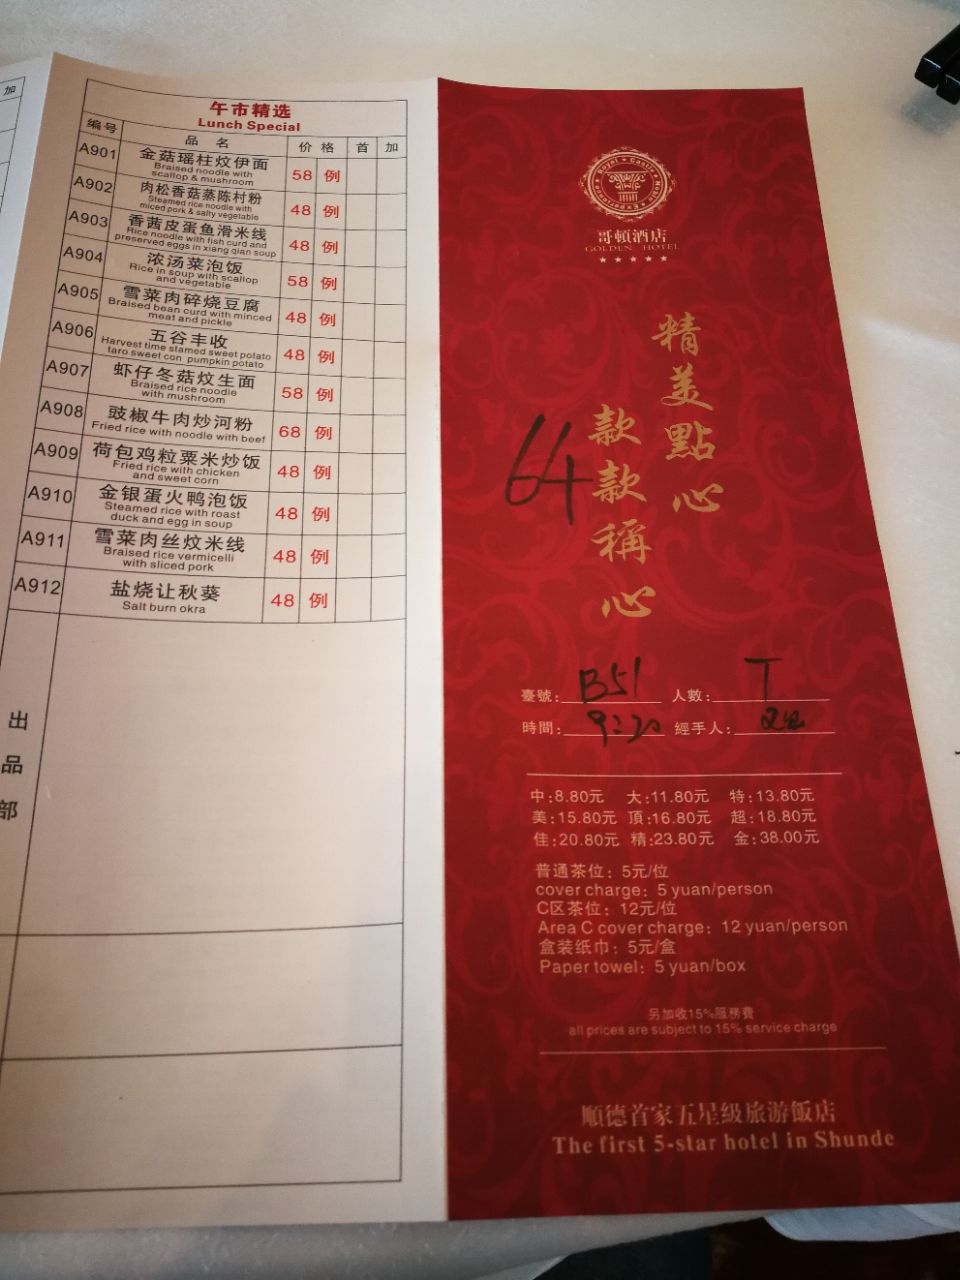 加
午市精选
Lunch Special
编号 品名 价格 首 加
A901 金菇瑶柱炆伊面 58 例
Braised noodle with
scallop & mushroom
A902 肉松香菇蒸陈村粉 48 例
Steamed rice noodle with
miced pork & salty vegetable
A903 香茜皮蛋鱼滑米线 48 例
Rice noodle with fish curd and
preserved eggs in xiang qian soup
A904 浓汤菜泡饭 58 例
Rice in soup with scallop
and vegetable
A905 雪菜肉碎烧豆腐 48 例
Braised bean curd with minced
meat and pickle
A906 五谷丰收 48 例
Harvest time stamed sweet potato
taro sweet con pumpkin potato
A907 虾仔冬菇炆生面 58 例
Braised rice noodle
with mushroom
A908 豉椒牛肉炒河粉 68 例
Fried rice with noodle with beef
A909 荷包鸡粒粟米炒饭 48 例
Fried rice with chicken
and sweet corn
A910 金银蛋火鸭泡饭 48 例
Steamed rice with roast
duck and egg in soup
A911 雪菜肉丝炆米线 48 例
Braised rice vermicelli
with sliced pork
A912 盐烧让秋葵 48 例
Salt burn okra
出品部
哥頓酒店
GOLDEN HOTEL
精美點心
款款稱心
64
臺號: B51 人數: T
時間: 9:20 經手人:
中:8.80元 大:11.80元 特:13.80元
美:15.80元 頂:16.80元 超:18.80元
佳:20.80元 精:23.80元 金:38.00元
普通茶位: 5元/位
cover charge: 5 yuan/person
C区茶位: 12元/位
Area C cover charge: 12 yuan/person
盒装纸巾: 5元/盒
Paper towel: 5 yuan/box
另加收15%服務費
all prices are subject to 15% service charge
順德首家五星級旅游飯店
The first 5-star hotel in Shunde